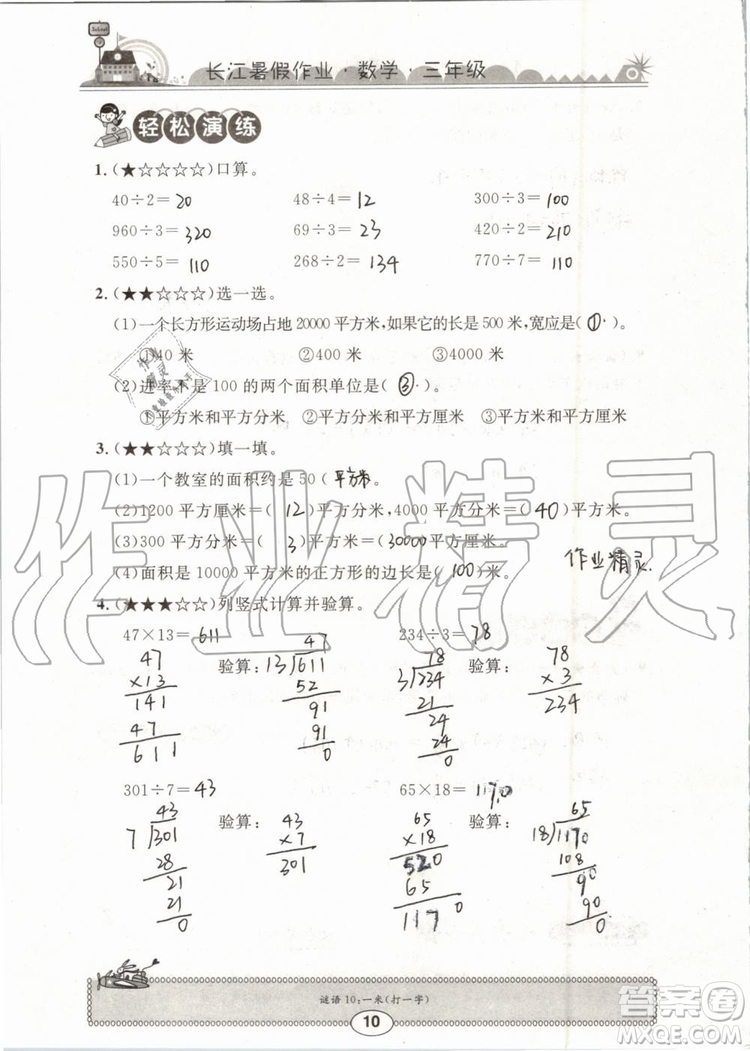 School
长江暑假作业·数学·三年级
轻松演练
1.(★☆☆☆☆)口算。
40÷2=20 48÷4=12 300÷3=100
960÷3=320 69÷3=23 420÷2=210
550÷5=110 268÷2=134 770÷7=110
2.(★★☆☆☆)选一选。
(1)一个长方形运动场占地20000平方米,如果它的长是500米,宽应是(①)。
①40米 ②400米 ③4000米
(2)进率不是100的两个面积单位是(③)。
①平方米和平方分米 ②平方分米和平方厘米 ③平方米和平方厘米
3.(★★☆☆☆)填一填。
(1)一个教室的面积约是50(平方米)。
(2)1200平方厘米=(12)平方分米,4000平方分米=(40)平方米。
(3)300平方分米=(3)平方米=(30000平方厘米)。
(4)面积是10000平方米的正方形的边长是(100)米。
作业精灵
4.(★★★☆☆)列竖式计算并验算。
47×13=611 234÷3=78
47 47 78 78
×13 验算: 13 611 3 234 验算: ×3
141 52 21 234
47 91 24
611 91 24
0 0
301÷7=43 65×18=1170
43 43 65 65
7 301 验算: ×7 ×18 验算: 18 1170
28 301 520 108
21 65 90
21 1170 90
0 0
谜语10:一米(打一字)
10
作业精灵
答案圈
MXQE.COM